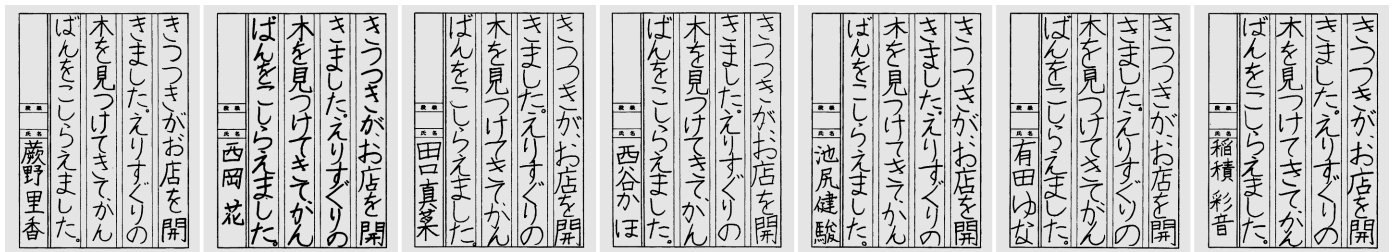 きつつきがお店を開
きました。えりすぐりの
木を見つけてきて、かん
ばんをこしらえました。
段級
氏名
蕨野里香
きつつきが、お店を開
きました。えりすぐりの
木を見つけてきて、かん
ばんをこしらえました。
段級
氏名
西岡 花
きつつきが、お店を開
きました。えりすぐりの
木を見つけてきて、かん
ばんをこしらえました。
段級
氏名
田口真菜
きつつきが、お店を開
きました。えりすぐりの
木を見つけてきて、かん
ばんをこしらえました。
段級
氏名
西谷かほ
きつつきが、お店を開
きました。えりすぐりの
木を見つけてきて、かん
ばんをこしらえました。
段級
氏名
池尻健駿
きつつきが、お店を開
きました。えりすぐりの
木を見つけてきて、かん
ばんをこしらえました。
段級
氏名
有田ゆな
きつつきが、お店を開
きました。えりすぐりの
木を見つけてきて、かん
ばんをこしらえました。
段級
氏名
稲積 彩音